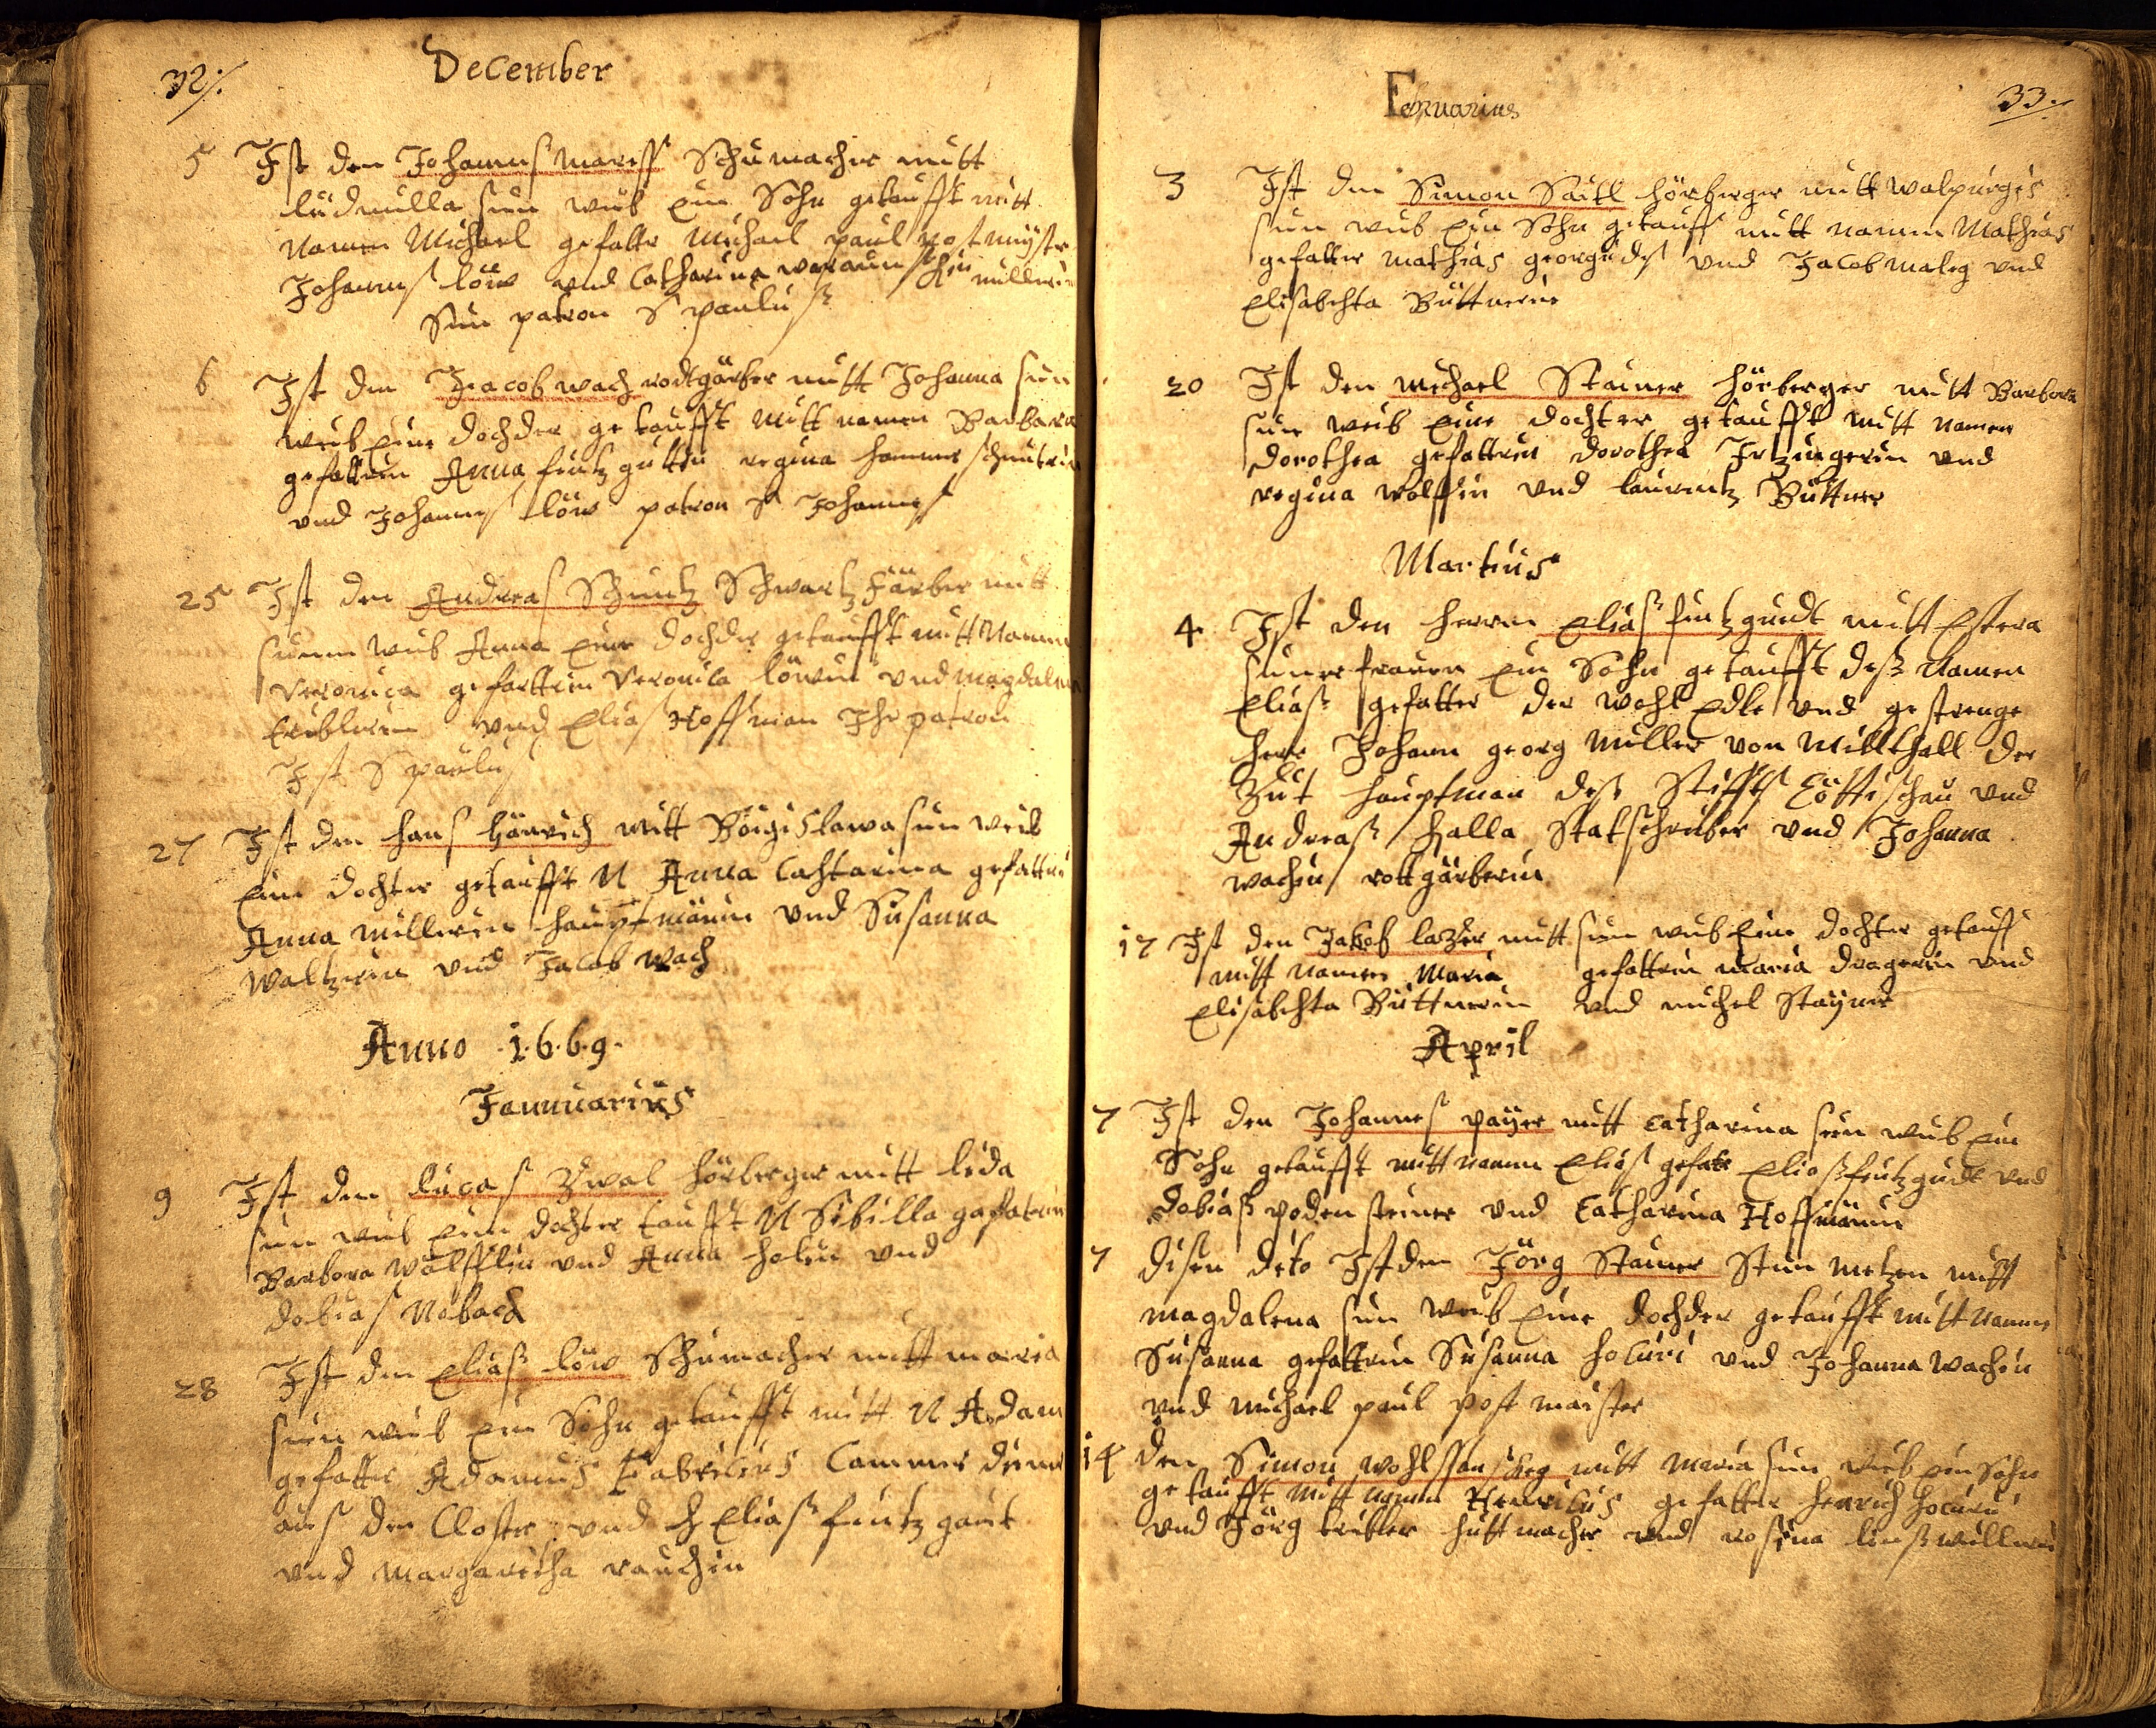 32/.
December
5 Ist den Johannes Schumacher mitt
ludmilla sein weib Ein Sohn getaufft mitt
Namen Michael gefatter Michael paul postmeyster
Johannes löw und Catharina
Sein patron S paulus
6 Ist den Jacob wach rodtgärber mitt Johanna sein
weib Eine dochder getaufft mitt namen Barbara
gefattern Anna regina
und Johannes löw patron S Johannes
25 Ist den Andreas Schwartz färber mitt
seinen weib Anna Eine dochder getaufft mitt Namen
Veronica gefatterin Veronica löwin und magdalena
und Elias Hoffman Ihr patron
Ist S paulus
27 Ist den hans mitt sein weib
Ein dochter getaufft N Anna Cathtarina gefatterin
Anna millerin hauptmänin und Susanna
Waltzerin und Jacob Wach
Anno .1.6.6.9.
Januuarius
9 Ist den lucas Zwal hörberger mitt lida
sein weib Eine dochter taufft N Sibilla gefaterin
Barbora wolfflin und Anna holin und
dobias
28 Ist den Elias löw Schumacher mitt maria
sein weib Ein Sohn getaufft mitt N Adam
gefatter Adamus Fabricius Cammer diener
aus den Closter und H Elias
und Margaritha rauchin
Februarius
33./
3 Ist den Simon Saitl hörberger mitt walpurgis
sein weib Ein Sohn getauff mitt namen Mathias
gefatter mathias und Jacob und
Elisabehta Büttnerin
20 Ist den michael Stainer hörberger mitt Barbora
sein weib Eine dochter getaufft mitt namen
dorothea gefattrin dorothea und
regina wolffin und laurentz Büttner
Martius
4. Ist den herrn Elias mitt Estera
seiner frauen Ein Sohn getaufft deß Namen
Elias gefatter der wohl Edle und gestrenge
herr Johann georg Miller von Millthall der
Zeit hauptman deß Stiffts und
Andreas Halla Statschreiber und Johanna
wachin rottgärberin
17 Ist den Jakob mitt sein weib Eine dochter getauff
mitt namen Maria gefattrin maria dragerin und
Elisabehta Büttnerin und michel Stayner
April
7 Ist den Johannes payer mitt Catharina sein weib Ein
Sohn getaufft mitt namen Elias gefater Elias und
dobias podensteiner und Catharina Hoffmänin
7 disen dito Ist den Jörg Stainer Stein metzen mitt
magdalena sein weib Eine dochder getaufft mitt namen
Susanna gefattrin Susanna und Johanna wachin
und michael paul post maister
14 den Simon mitt Maria sein weib ein Sohn
getaufft mitt namen Henricus gefatter henrich
und Jörg huttmacher und rosina